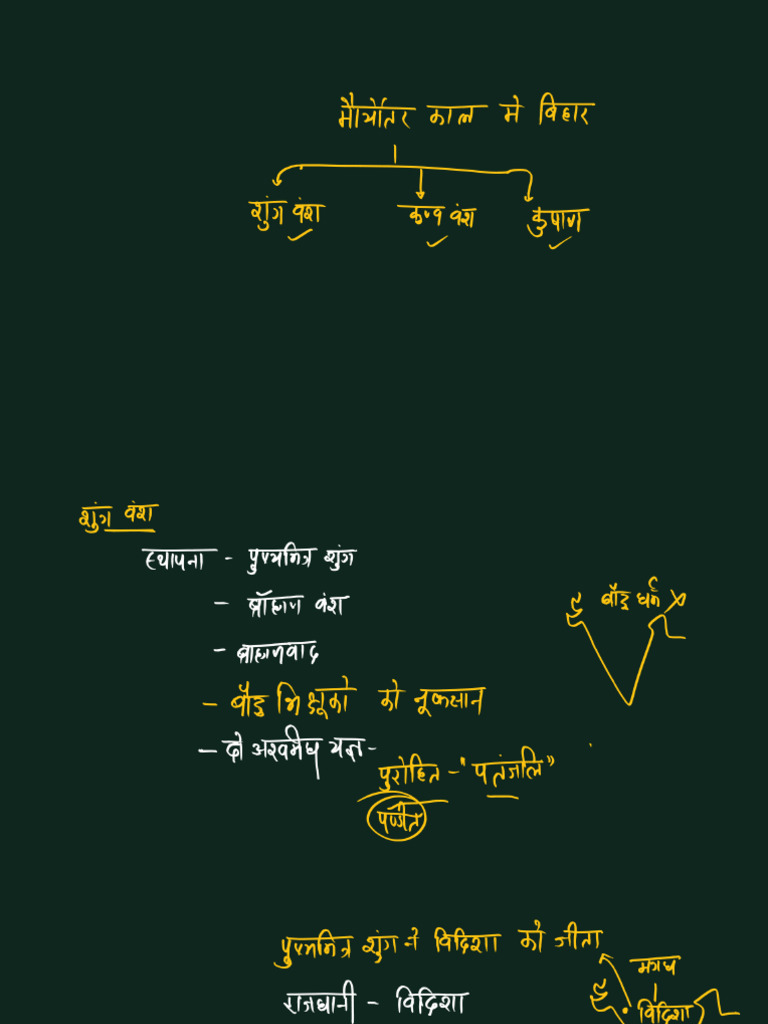 मौर्योतर काल मे बिहार
शुंग वंश कण्व वंश कुषाण
शुंग वंश
स्थापना - पुष्यमित्र शुंग
- ब्राँह्मण वंश
- ब्राह्मणवाद
बौद्ध धर्म
- बौद्ध भिक्षूको को नूकसान
- दो अश्वमेघ यज्ञ -
पुरोहित - "पतंजलि"
पण्डीत
पुष्यमित्र शुंग ने विदिशा को जीता
मगध
राजधानी - विदिशा
विदिशा